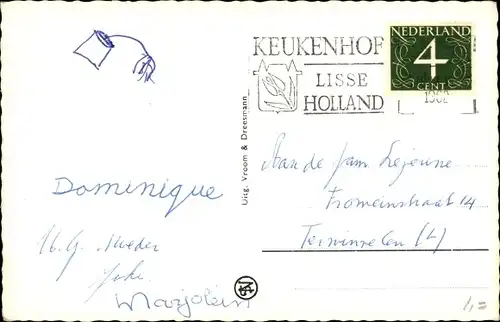 KEUKENHOF
LISSE
HOLLAND
NEDERLAND
4
CENT
Uitg. Vroom & Dreesmann
Aan de fam Lejeune
Fromeinstraat 14
Terwinselen (L)
Dominique
Marjolein
1,=